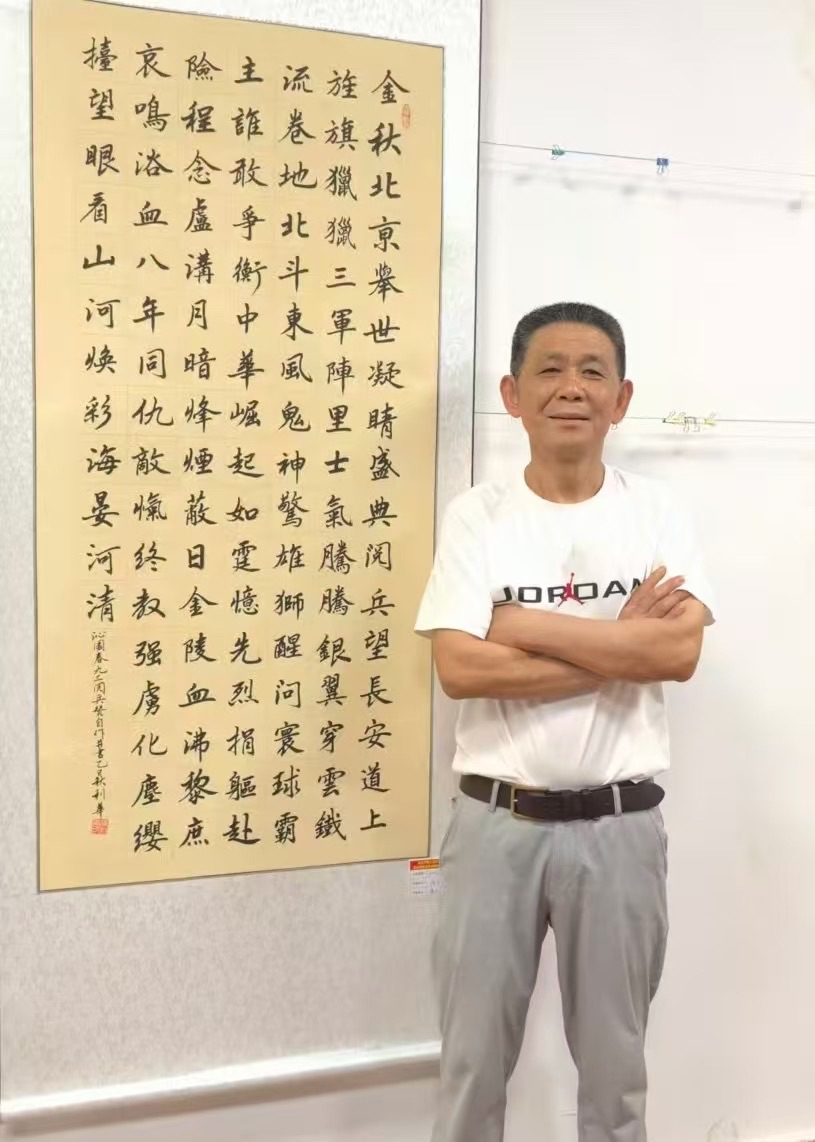 金秋北亰舉世凝睛盛典阅兵望長安道上
旌旗獵獵三軍陣里士氣騰騰銀翼穿雲鐵
流卷地北斗東風鬼神驚雄獅醒問寰球霸
主誰敢爭衡中華崛起如霆憶先烈捐軀赴
險程念盧溝月暗烽煙蔽日金陵血沸黎庶
哀鳴浴血八年同仇敵愾終教强虜化塵纓
擡望眼看山河煥彩海晏河清
沁園春九三阅兵贊自作并書乙巳秋利華
JORDAN